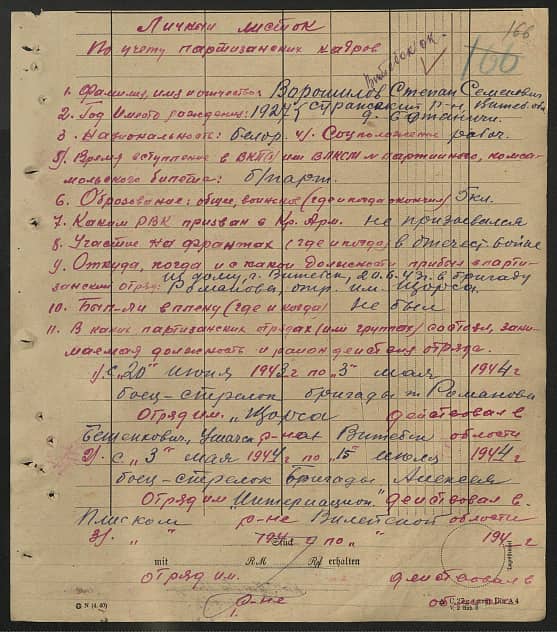 166
Личный листок
166
По учету партизанских кадров
Витебск ок.
1. Фамилия, имя и отчество: Ворошилов Степан Семенович
2. Год и место рождения: 1927 р-н, Витебск. о
3. Национальность: белор. 4. Соцположение рабоч.
5. Время вступление в ВКП(б) или ВЛКСМ № партийного, комсо-
мольского билета: б/парт.
6. Образование: общее, военное (где и когда окончил) 5кл.
7. Каким РВК призван в Кр. Арм. не призывался
8. Участие на франтах (где и когда) в отечест. войне
9. Откуда, когда и с какой должности прибыл в парти-
из дому, г. Витебск, 20.6.43г. в бригаду
занский отряд: Романова, отр. им. Щорса
10. Был-ли в плену (где и когда) не был
11. В каких партизанских отрядах (или группах) состоял, зани-
маемая должность и район действия отряда.
1) с "20" июня 1943 г по "3" мая 1944 г
боец-стрелок бригады т. Романова
Отряд им. "Щорса действовал в
Бешенкович, Ушачск р-нах Витебск области
2) с "3" мая 1944 г по "15" июня 1944 г
боец-стрелок Бригады Алексея
Отряд им "Интернацион." действовал в
Плиском р-не Вилейской области
3) " " 194 г по " " 194 г
Stück
mit RM Rpf erhalten
отряд им. действовал в
р-не области
N (4. 40)
Din A 4